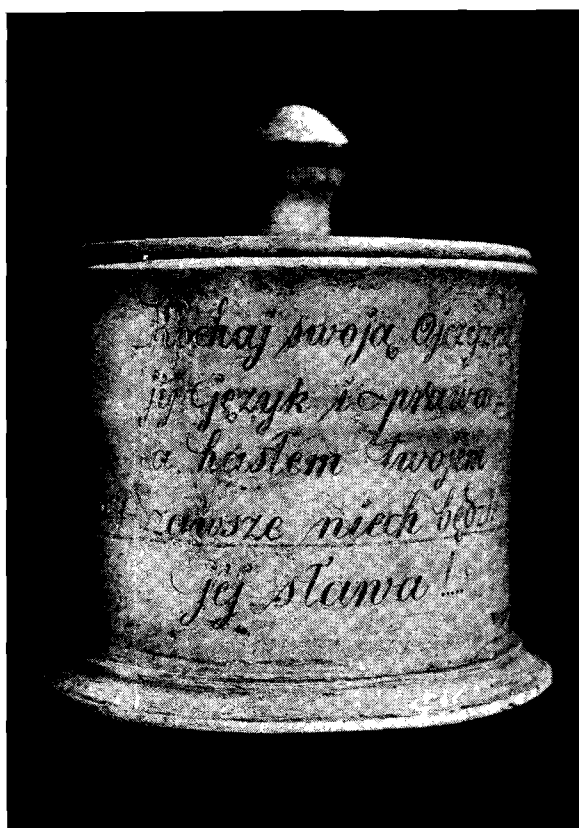 Kochaj swoją Ojczyznę
jej Język i prawa
a hasłem twojem
zawsze niech będzie
jej sława!..